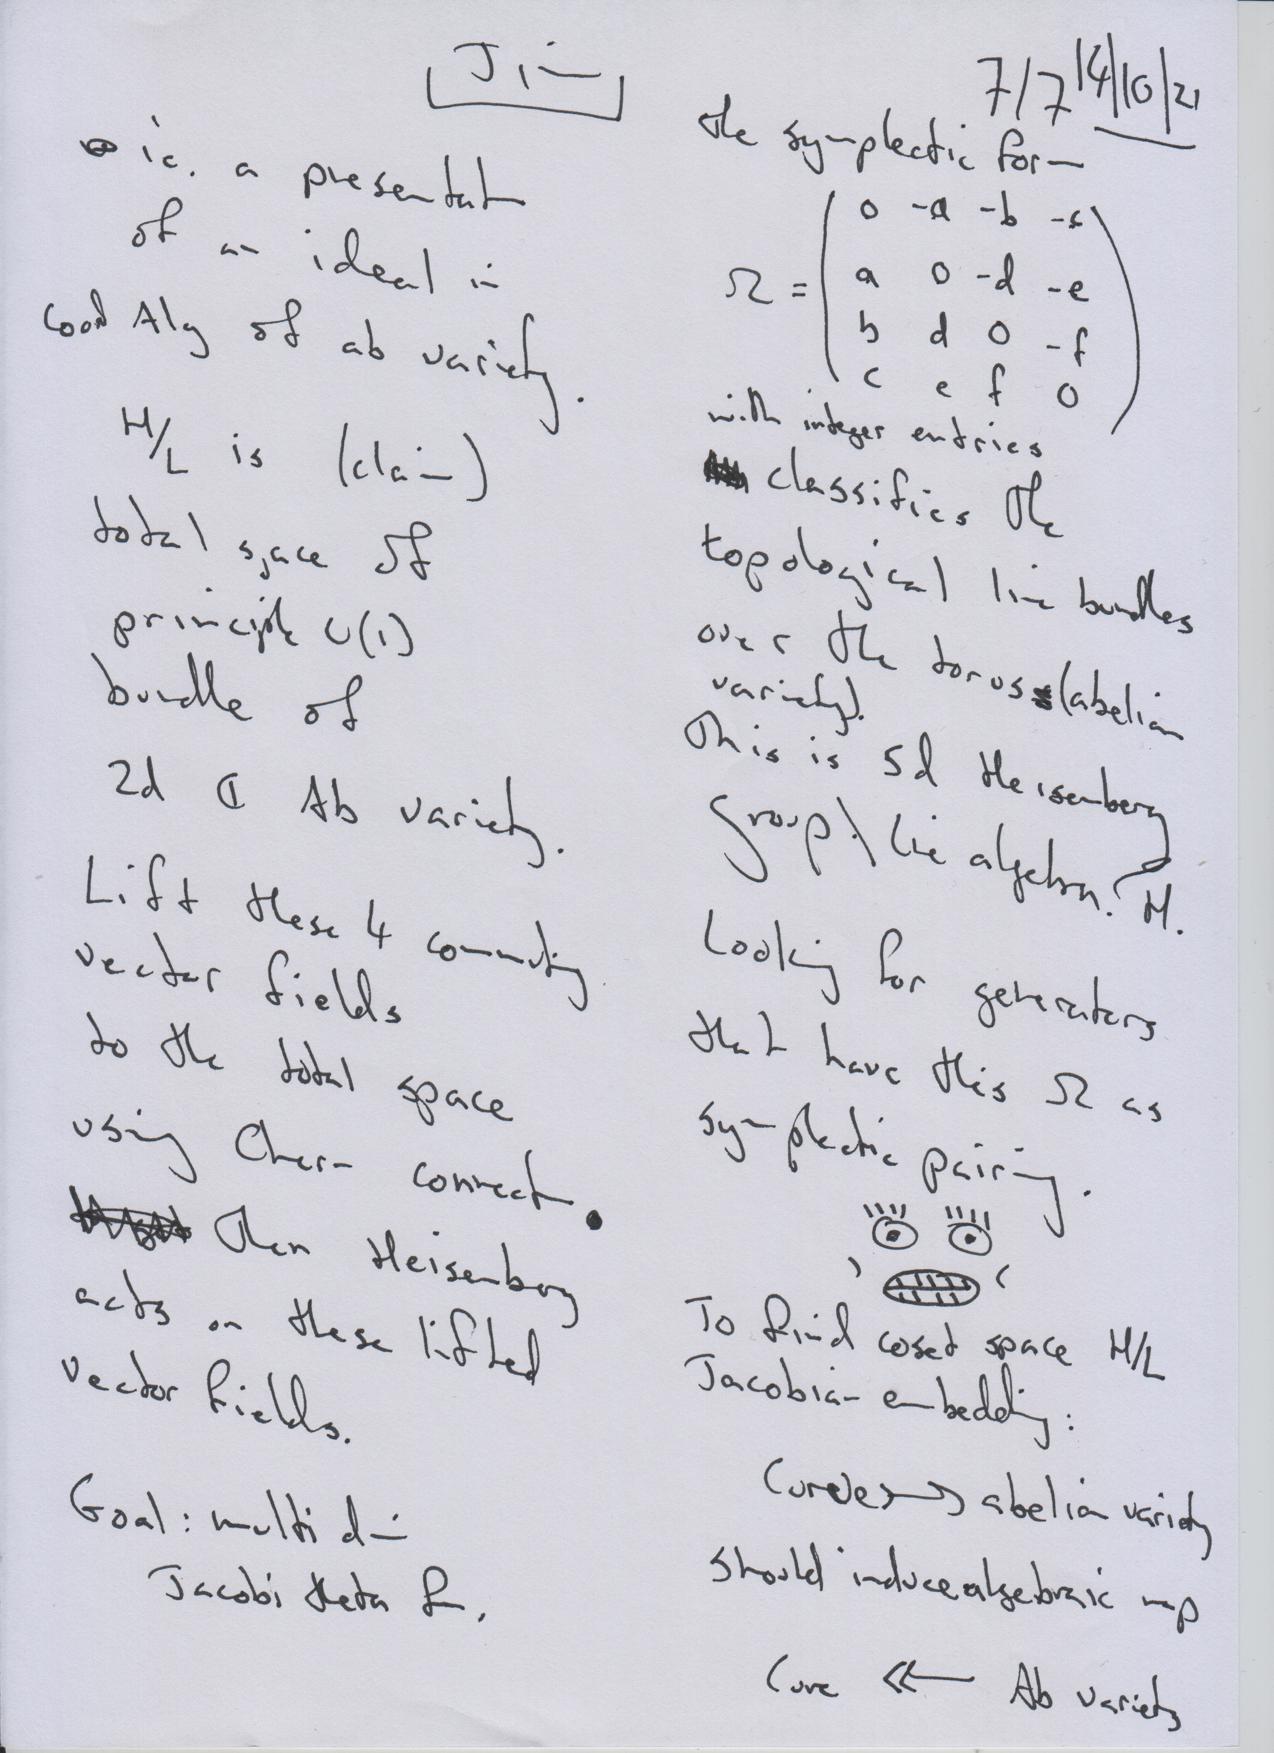 Jim
7/7 14/10/21
ie. a presentat
of an ideal in
coord Alg of ab variety.
H/L is (claim)
total space of
principle U(1)
bundle of
2d ℂ Ab variety.
Lift these 4 commuting
vector fields
to the total space
using Chern connect.
Then Heisenberg
acts on these lifted
vector fields.
Goal: multi dim
Jacobi theta fn.
the symplectic form
Ω = ( 0 -a -b -c
a 0 -d -e
b d 0 -f
c e f 0 )
with integer entries
classifies the
topological line bundles
over the torus (abelian
variety).
This is 5d Heisenberg
group \ Lie algebra. H.
Looking for generators
that have this Ω as
symplectic pairing.
To find coset space H/L
Jacobian embedding:
Curve ↣ abelian variety
should induce algebraic map
Curve ↞ Ab variety